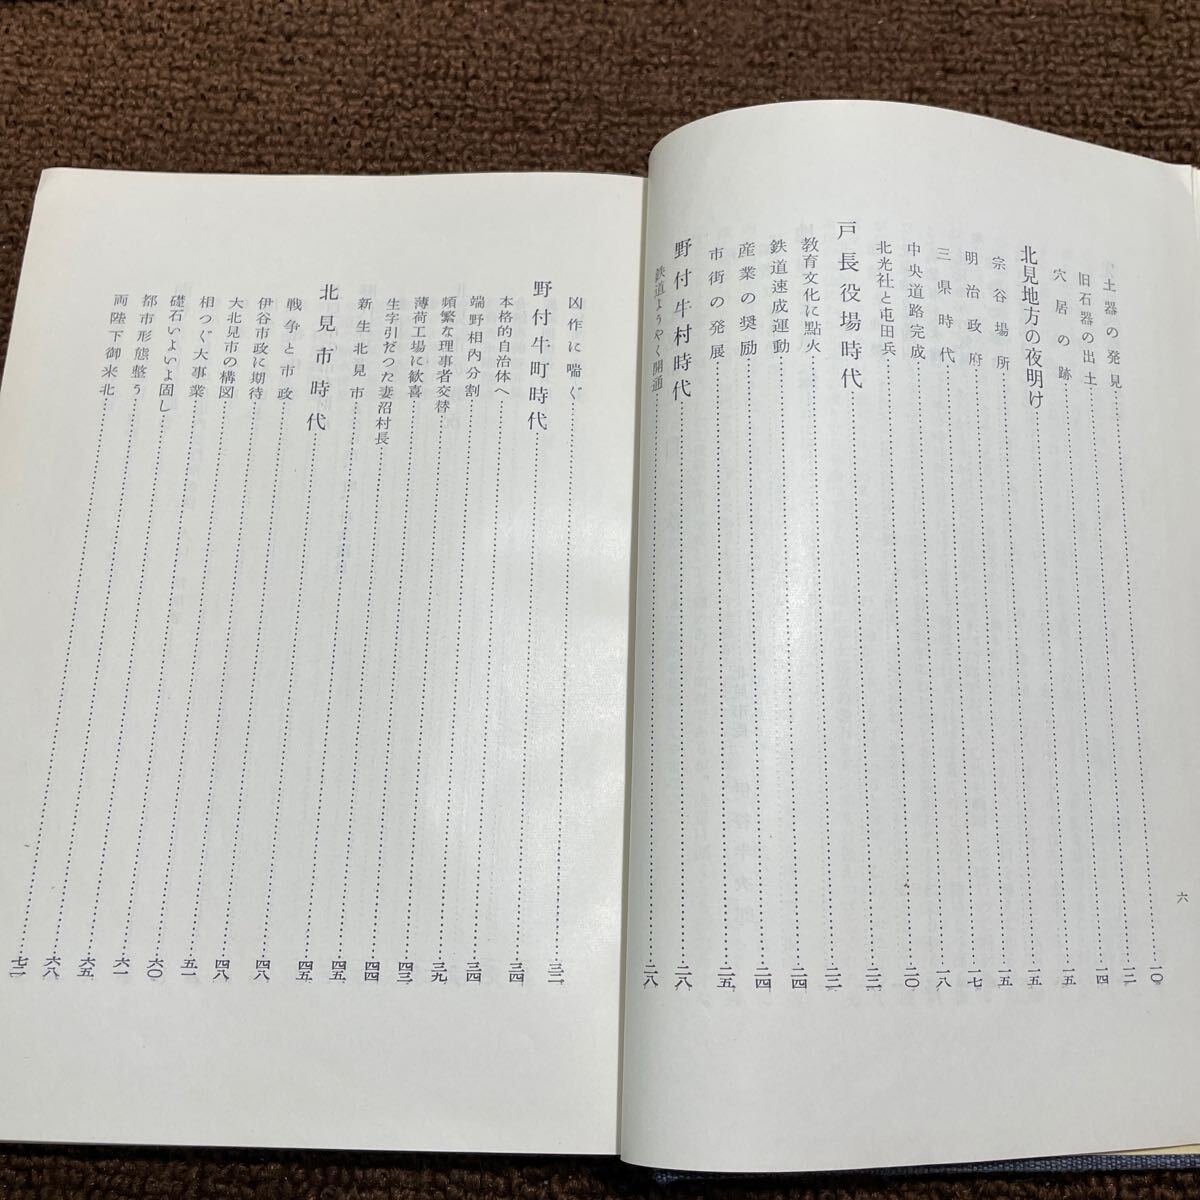 六
土器の発見……一〇
旧石器の出土……一二
穴居の跡……一四
北見地方の夜明け……一五
宗谷場所……一五
明治政府……一五
三県時代……一七
中央道路完成……一八
北光社と屯田兵……二〇
戸長役場時代……二二
教育文化に點火……二三
鉄道速成運動……二四
産業の奨励……二四
市街の発展……二五
野付牛村時代……二八
鉄道ようやく開通……二八
凶作に喘ぐ……三二
野付牛町時代……三四
本格的自治体へ……三四
端野相内分割……三九
頻繁な理事者交替……四三
薄荷工場に歓喜……四四
生字引だつた妻沼村長……四五
新生北見市……四五
北見市時代……四八
戦争と市政……四八
伊谷市政に期待……五一
大北見市の構図……六〇
相つぐ大事業……六一
礎石いよいよ固し……六五
都市形態整う……六八
両陛下御来北……七二